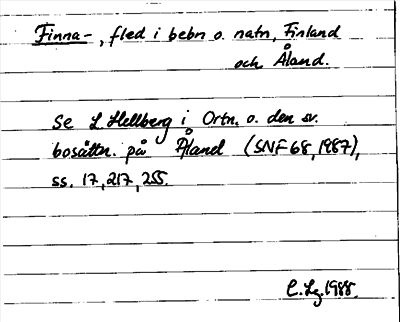 Finna-, fled i bebn o. natn, Finland
och Åland.
Se L Hellberg i Ortn. o. den sv.
bosättn. på Åland (SNF 68, 1987),
ss. 17, 217, 255.
C. Lg. 1988.